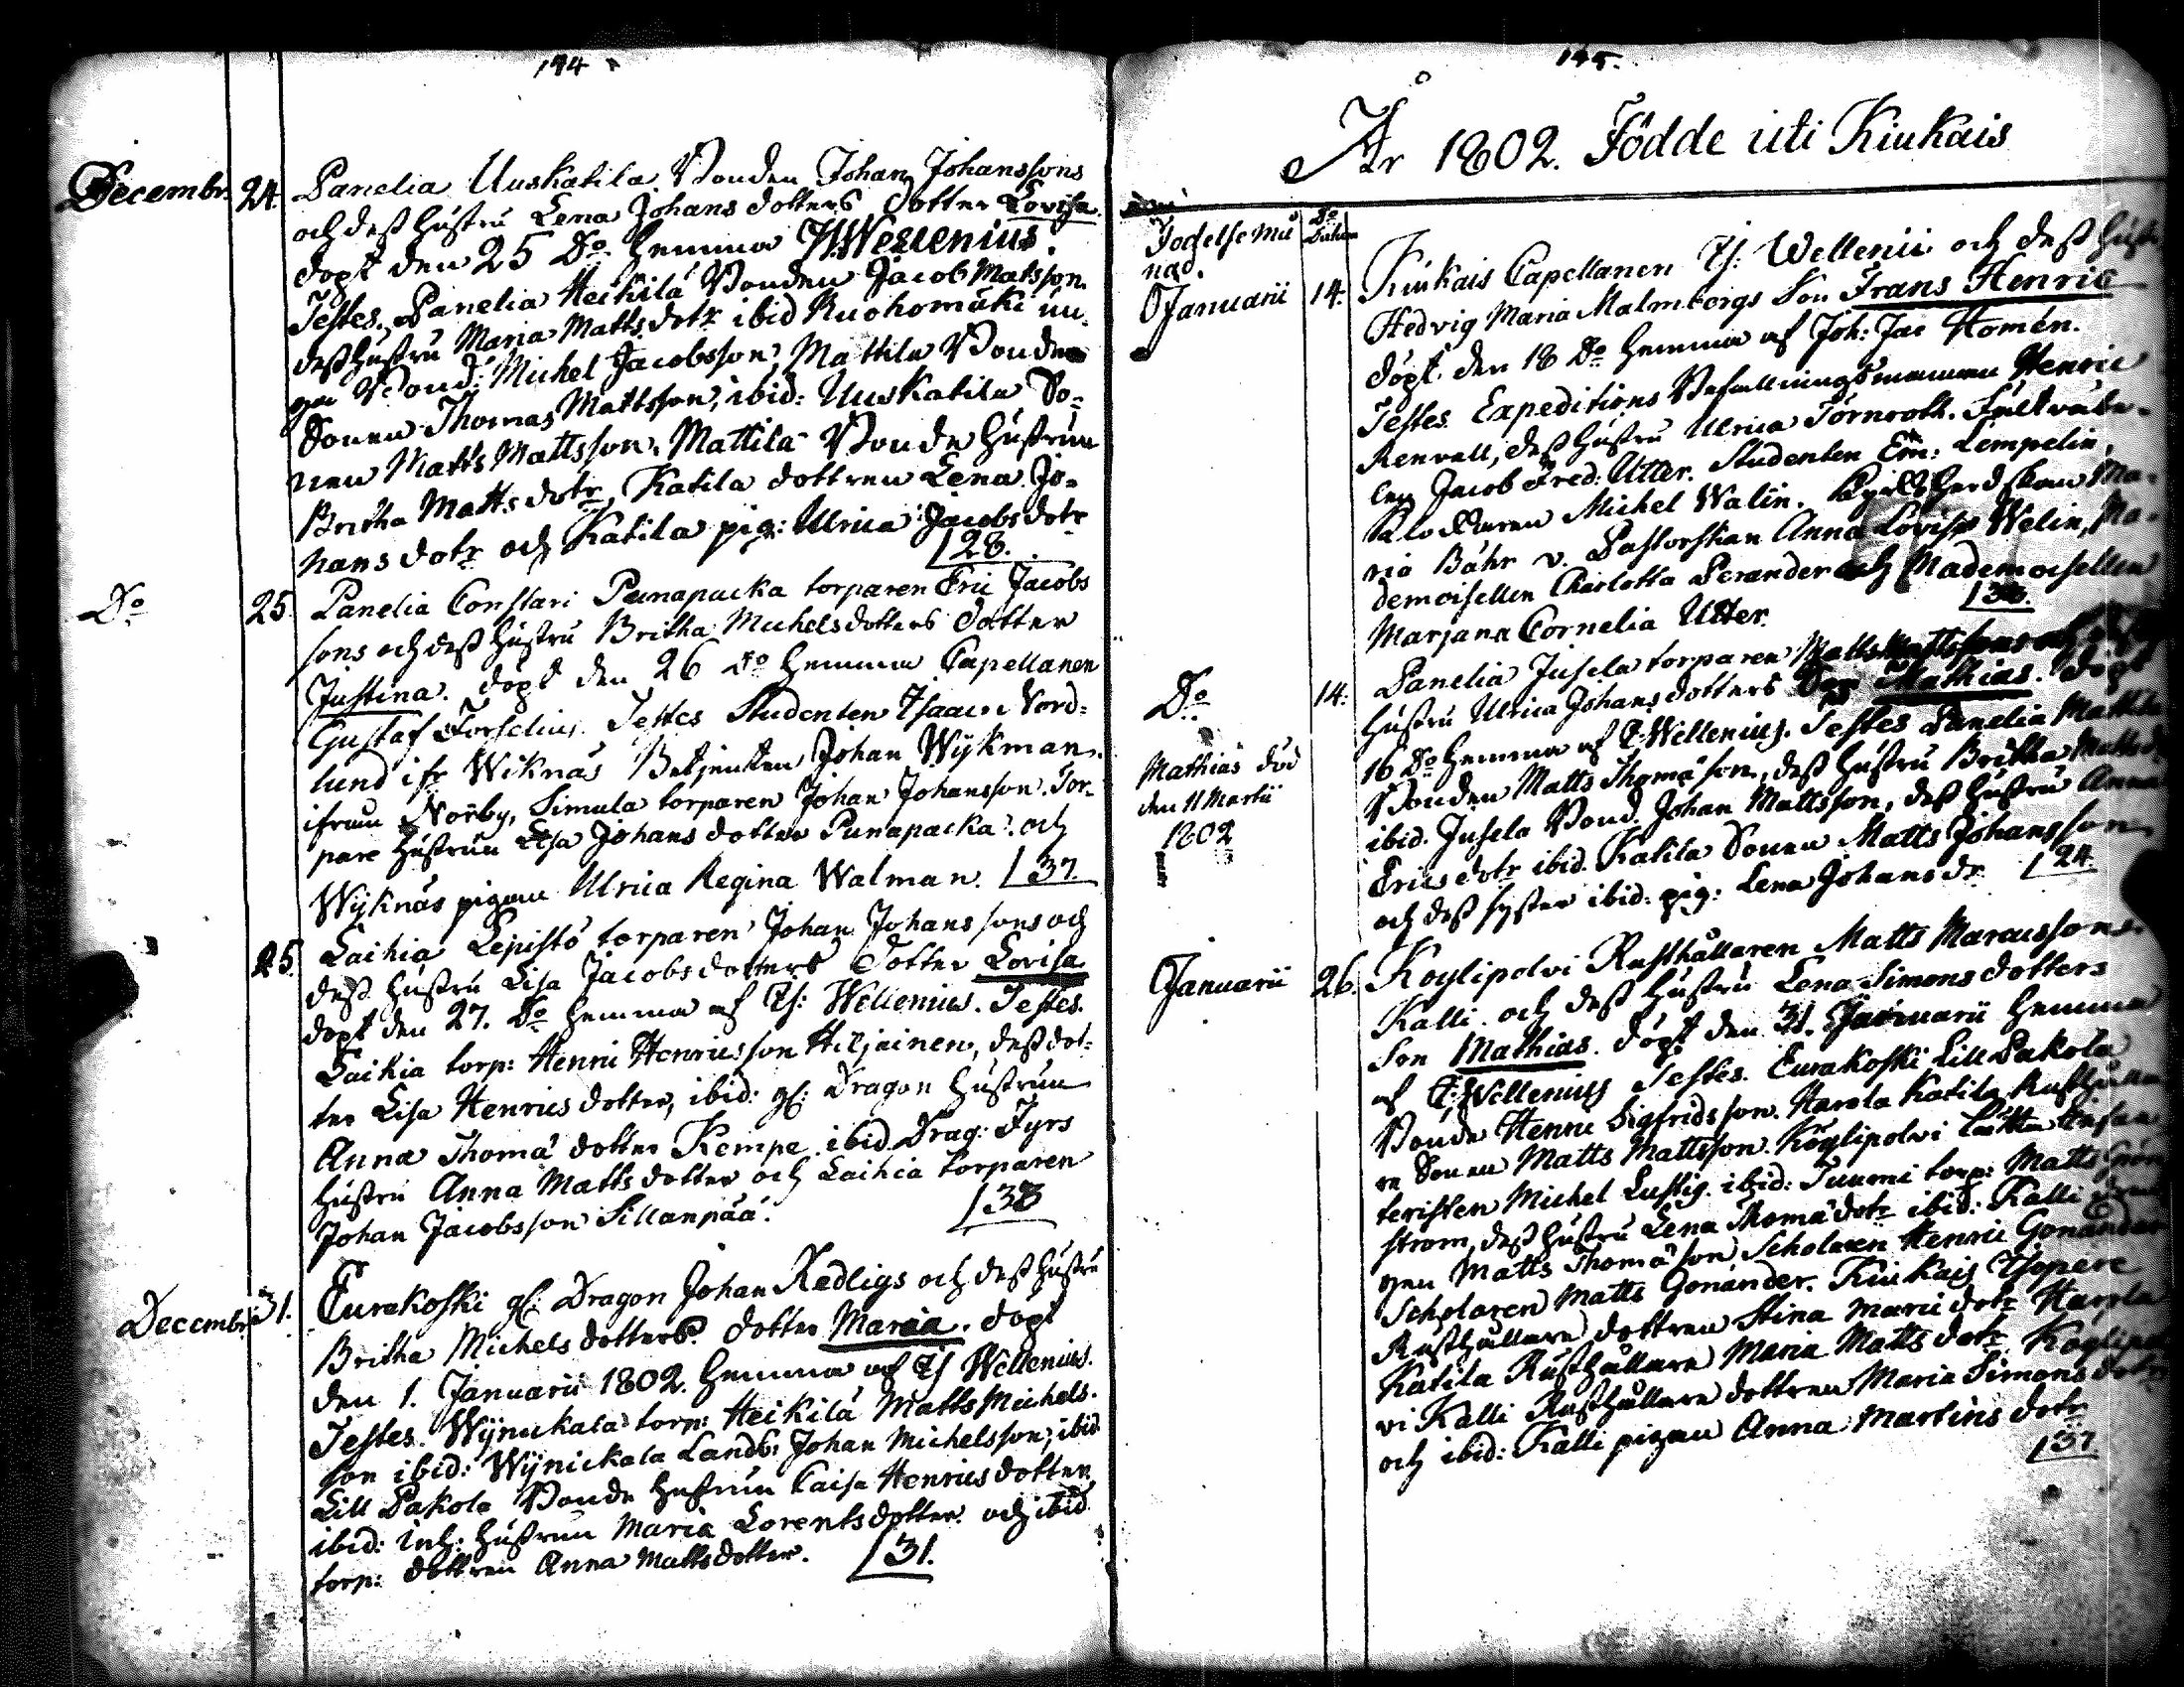 194
Decembr. 24. Panelia Uuskatila Bonden Johan Johanssons
och dess hustru Lena Johans dotters dotter Lovisa.
döpt den 25 Do hemma Is: Wellenius.
Testes. Panelia Heikilä Bonden Jacob Matsson
dess hustru Maria Matts dotr ibid Ruohomäki un-
ga Bond: Michel Jacobsson, Mattila Bonde
Sonen Thomas Mattsson, ibid: Uuskatila So-
nen Matts Mattsson, Mattila Bonde hustrun
Britha Matts dotr, Katila dottren Lena Jo-
hans dotr och Katila pig: Ulrica Jacobs dotr
28.
Do 25. Panelia Constari Punapacka torparen Eric Jacobs
sons och dess hustru Britha Michelsdotters dotter
Justina. döpt den 26 Do hemma Capellanen
Gustaf Forselius. Testes Studenten Isaac Nord-
lund ifr Wiknäs Betjenten Johan Wykman
ifrån Norby, Simula torparen Johan Johansson. Tor-
pare hustrun Lisa Johans dotter Punapacka. och
Wyknäs pigan Ulrica Regina Walman. 37
25. Laihia Lepistö torparen Johan Johanssons och
dess hustru Lisa Jacobsdotters dotter Lovisa
döpt den 27. Do hemma af Is: Wellenius. Testes.
Laihia torp: Henric Henricsson Hiljainen, dess dot-
ter Lisa Henrics dotter, ibid: gl: Dragon hustrun
Anna Thomä dotter Kempe ibid Drag: Fyrs
hustru Anna Matts dotter och Laihia torparen
Johan Jacobsson Sillanpää. 38
Decembr 31. Eurakoski gl: Dragon Johan Redligs och dess hustru
Britha Michels dotters dotter Maria. döpt
den 1. Januarii 1802. hemma af Is Wellenius.
Testes. Wynickala torp: Heikilä Matts Michels-
son ibid: Wynickala Landb: Johan Michelsson, ibid
Lill Pakola Bonde hustrun Caisa Henrics dotter
ibid: inh: hustrun Maria Lorents dotter. och ibid
torp: dottren Anna Matts dotter. 31.
195.
År 1802. Födde uti Kiukais
Födelse Må
nad. Do Datum
Januarii 14. Kiukais Capellanen Is: Wellenii och dess hust
Hedvig Maria Malmbergs Son Frans Henric
döpt den 18 Do hemma af Joh: Jac Homén.
Testes Expeditions Befallningsmannen Henric
Renvall, dess hustru Ulrica Törnroth. Fältväbe-
len Jacob Fred: Utter. Studenten Em: Lempelin,
Klockaren Michel Walin. Kyrkoherdskan Ma-
ria Bähr v. Pastorskan Anna Lovisa Welin, Ma-
demoisellen Charlotta Perander och Mademoisellen
Marjana Cornelia Utter. 38.
Do 14. Panelia Jusela torparen Matts Mattssons och dess
hustru Ulrica Johans dotters Son Mathias. döpt
16 Do hemma af Is Wellenius. Testes Panelia Mattila
Bonden Matts Thomäson, dess hustru Britha Matts d
ibid. Jusela Bond. Johan Mattsson, dess hustru Anna
Erics dotr ibid. Katila Sonen Matts Johansson
och dess syster ibid: pig: Lena Johans dr. 24.
Mathias död
den 11 Martii
1802
Januarii 26. Köylipolvi Rusthållaren Matts Marcussons
Kalli. och dess hustru Lena Simons dotters
Son Mathias. döpt den 31. Januarii hemma
af Is Wellenius Testes. Eurakoski Lill Pakola
Bonde Henric Sigfridsson. Harola Katila Rusthålla
re Sonen Matts Mattsson. Köylipolvi Infan
teristen Michel Lustig. ibid: Tuomi torp: Matts Grön
ström, dess hustru Lena Thomä dotr ibid: Kalli
gen Matts Thomäson Scholaren Henric Gonander
Scholaren Matts Gonander. Kiukais Isopere
Rusthållare dottren Stina Marci dotr Harola
Katila Rusthållare Maria Matts dotr Köylipol
vi Kalli Rusthållare dottren Maria Simons dotr
och ibid: Kalli pigan Anna Martins dotr
37